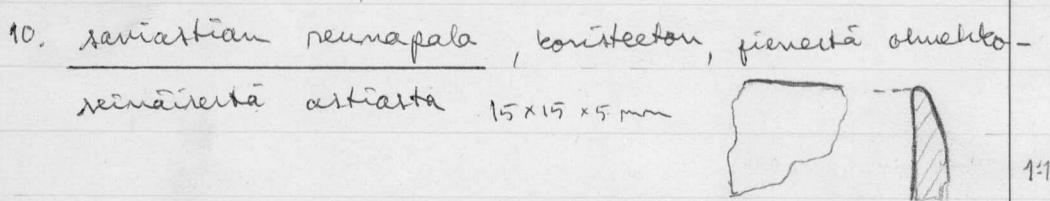 10. saviastian reunapala, koristeeton, pienestä ohuehko-
seinäisestä astiasta 15×15×5 mm
1:1